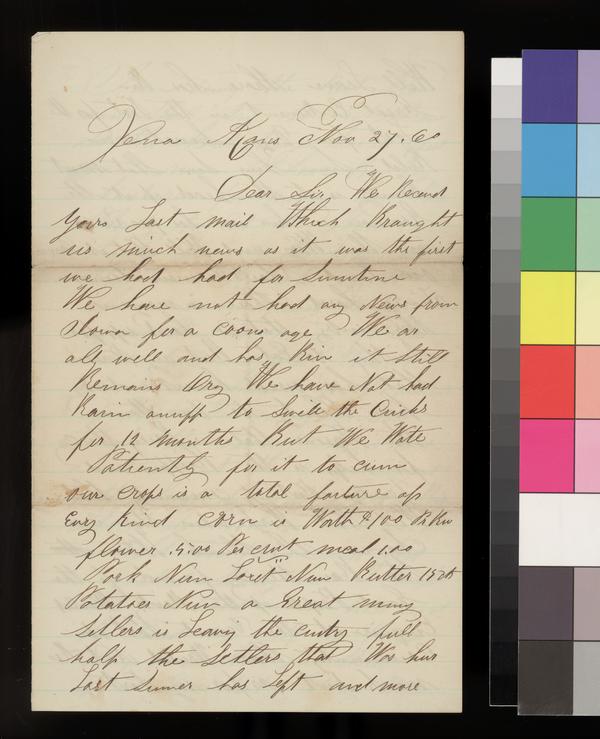 Xena Kans Nov 27. 60
Dear Sir We Recevd
Yours Last mail Which Braught
us much news as it was the first
we had had for sumtime
We have not had any News from
Iowa for a coons age We ar
all well and has bin it still
Remains Dry We have Not had
Rain anuff to Swile the Cricks
for 12 months But We Wate
Patiently for it to cum
our crops is a total farture of
Evry kind corn is Worth $1.00 Pr Bu
flower 5.00 Per cwt meal 1.00
Pork Nun Nun Butter 15 cts
Potatoes Nun a Great many
Setlers is Leavig the cutry full
half the Setlers that Was hur
Last Sumer has Left and more